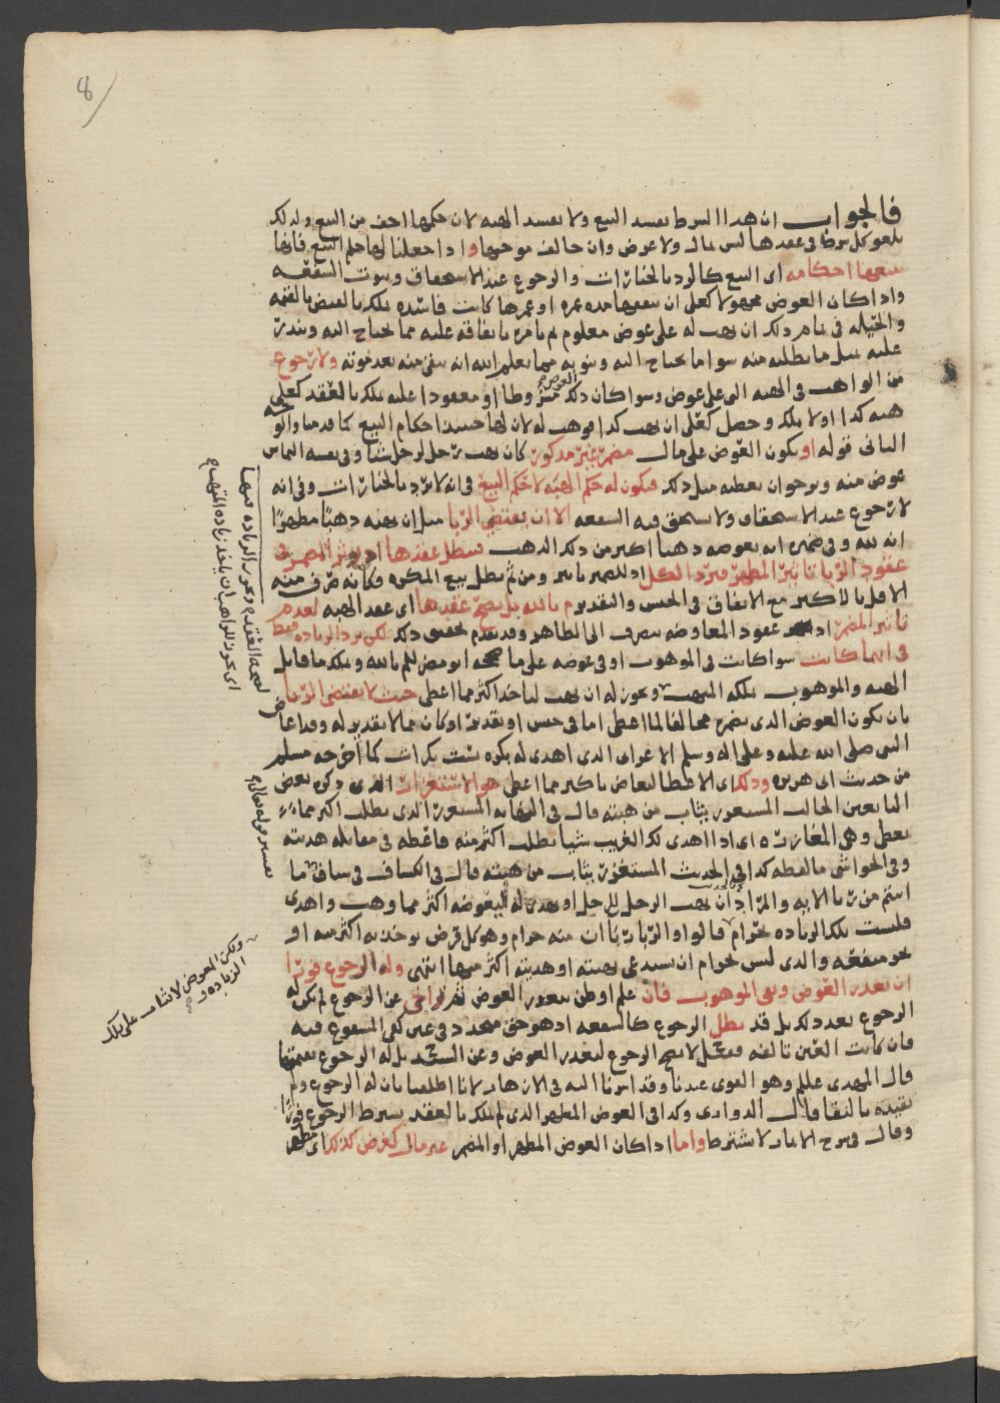 8
فالجواب ان هذا الشرط يفسد البيع ولا يفسد الهبه لان حكمها اخف من البيع ولذلك
يلغو كل شرط في عقدها ليس بمال ولا عرض وان خالف موجبها واذا جعلنا لها حكم البيع فانها
تتبعها احكامه اي البيع كالرد بالخيارات والرجوع عند الاستحقاق وثبوت الشفعه
واذا كان العوض مجهولا كعلى ان ينفعها مده عمره او عمرها كانت فاسده تملك بالقبض بالقيمه
والحيله في تمام ذلك ان يهب له على عوض معلوم ثم يامره بانفاقه عليه مما يحتاج اليه
عليه مثل ما يطلبه منه سوا ما يحتاج اليه
من الواهب في الهبه التي على عوض وسوا كان ذلك العوض مشروطا او معقودا عليه تملك بالعقد كعلى
هبه كذا اولا تملك وحصل كعلى ان يهب كذا فوهب له لان لها حينئذ احكام البيع كما قدمنا والوجه
الثاني قوله او يكون العوض على مال مضمر غير مذكور كان يهب رجل لرجل شيا وفي نفسه التماس
عوض منه ويرجو ان يعطيه مثل ذلك فيكون له حكم الهبه لا حكم البيع في انه لا يرد بالخيارات وفي انه
لا رجوع عند الاستحقاق ولا يستحق فيه الشفعه الا ان يقتضي الربا مثل ان يهبه ذهبا مظهرا
انه لله وفي ضميره انه يعوضه ذهبا اكثر من ذلك الذهب فيبطل عقدها اذ يوثر المضمر في
عقود الربا تاثير المظهر فيرد الكل اذ للضمير تاثير ومن ثم بطل بيع المكره وكانه صرف منه
الاقل بالاكثر مع الاتفاق في الجنس والتقدير م بالله بل يصح عقدها اي عقد الهبه لعدم
تاثير المضمر اذ عقود المعاوضه تنصرف الى الظاهر وقد تقدم تحقيق ذلك لكن يرد الزياده فقط
في ايهما كانت سوا كانت في الموهوب او في عوضه على ما صححه ابو مضر للم بالله ويملك ما قابل
الهبه والموهوب يملكه المتهب ويجوز له ان يهب لياخذ اكثر مما اعطى حيث لا يقتضي الربا
بان يكون العوض الذي يضمره مخالفا لما اعطى اما في جنس او تقدير او كان مما لا تقدير له وقد اعاض
النبي صلى الله عليه وعلى اله وسلم الاعرابي الذي اهدى له بكره بست بكرات كما اخرجه مسلم
من حديث ابي هريره وذلك اي الاعطا ليعاض باكثر مما اعطى هو الاستغزار الذي ذكره بعض
التابعين الجانب المستغزر يثاب من هبته قال في النهايه المستغزر الذي يطلب اكثر مما
يعطي وهي المغازره اي اذا اهدى لك الغريب شيا يطلب اكثر منه فاعطه في مقابله هديته
وفي الحواشي ما لفظه كذا في الحديث المستغزر يثاب من هبته قال في الكشاف في سياق ما
اتيتم من ربا الايه والمراد ان يهب الرجل للرجل او يهدي له ليعوضه اكثر مما وهب واهدى
فليست تلك الزياده بحرام قالوا والربا ربا ان منه حرام وهو كل قرض يوخذ به اكثر منه او
يجر منفعه والذي ليس بحرام ان يستدعي بهبته او هديته اكثر منها انتهى وله الرجوع فورا
ان تعذر العوض وبقي الموهوب فان علم او ظن تعذر العوض ثم تراخى عن الرجوع لم يكن له
الرجوع بعد ذلك بل قد بطل الرجوع كالشفعه اذ هو حق متجدد في عين كفى المشفوع فيه
فان كانت العين تالفه فقيل لا يصح الرجوع ليتعذر العوض وعن السيد بل له الرجوع بقيمتها
قال المهدي عليلم وهو القوي عندنا وقد اشرنا اليه في الازهار لانا اطلقنا بان له الرجوع ولم
نقيده بالبقا قال الدواري وكذا في العوض المظهر الذي لم يملك بالعقد يشترط الرجوع فورا
وقال في شرح الاثمار لا يشترط واما اذا كان العوض المظهر او المضمر غير مال كغرض فكذلك اي مظهر
لصحه العقد م وتحرير الزياده فيها
اي يكون للواهب ان ياخذ زياده المتهب ام
تفسير قوله تعالى
ولكن العوض لا يثاب على تلك
الزياده